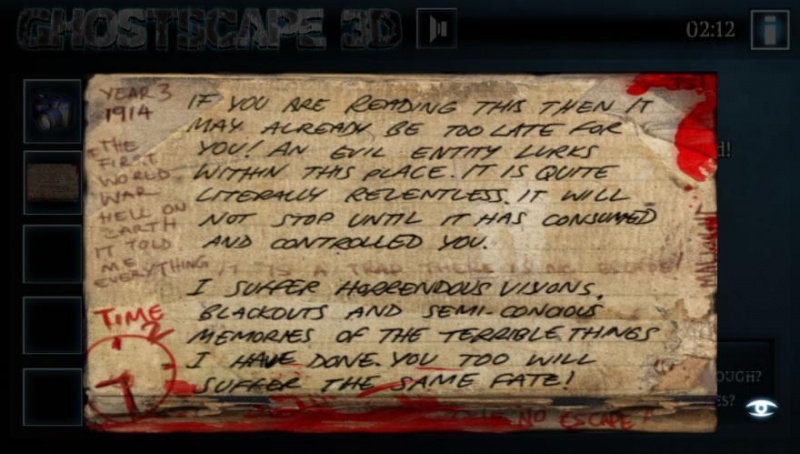 GHOSTSCAPE 3D
02:12
YEAR 3
1914
THE
FIRST
WORLD
WAR
HELL ON
EARTH
IT TOLD
ME
EVERYTHING
IF YOU ARE READING THIS THEN IT
MAY ALREADY BE TOO LATE FOR
YOU! AN EVIL ENTITY LURKS
WITHIN THIS PLACE. IT IS QUITE
LITERALLY RELENTLESS. IT WILL
NOT STOP UNTIL IT HAS CONSUMED
AND CONTROLLED YOU.
IT IS A TRAP THERE IS NO ESCAPE
I SUFFER HORRENDOUS VISIONS,
BLACKOUTS AND SEMI-CONCIOUS
MEMORIES OF THE TERRIBLE THINGS
I HAVE DONE. YOU TOO WILL
SUFFER THE SAME FATE!
TIME
2
NO ESCAPE!
MALIGNANT
d!
OUGH?
ES?